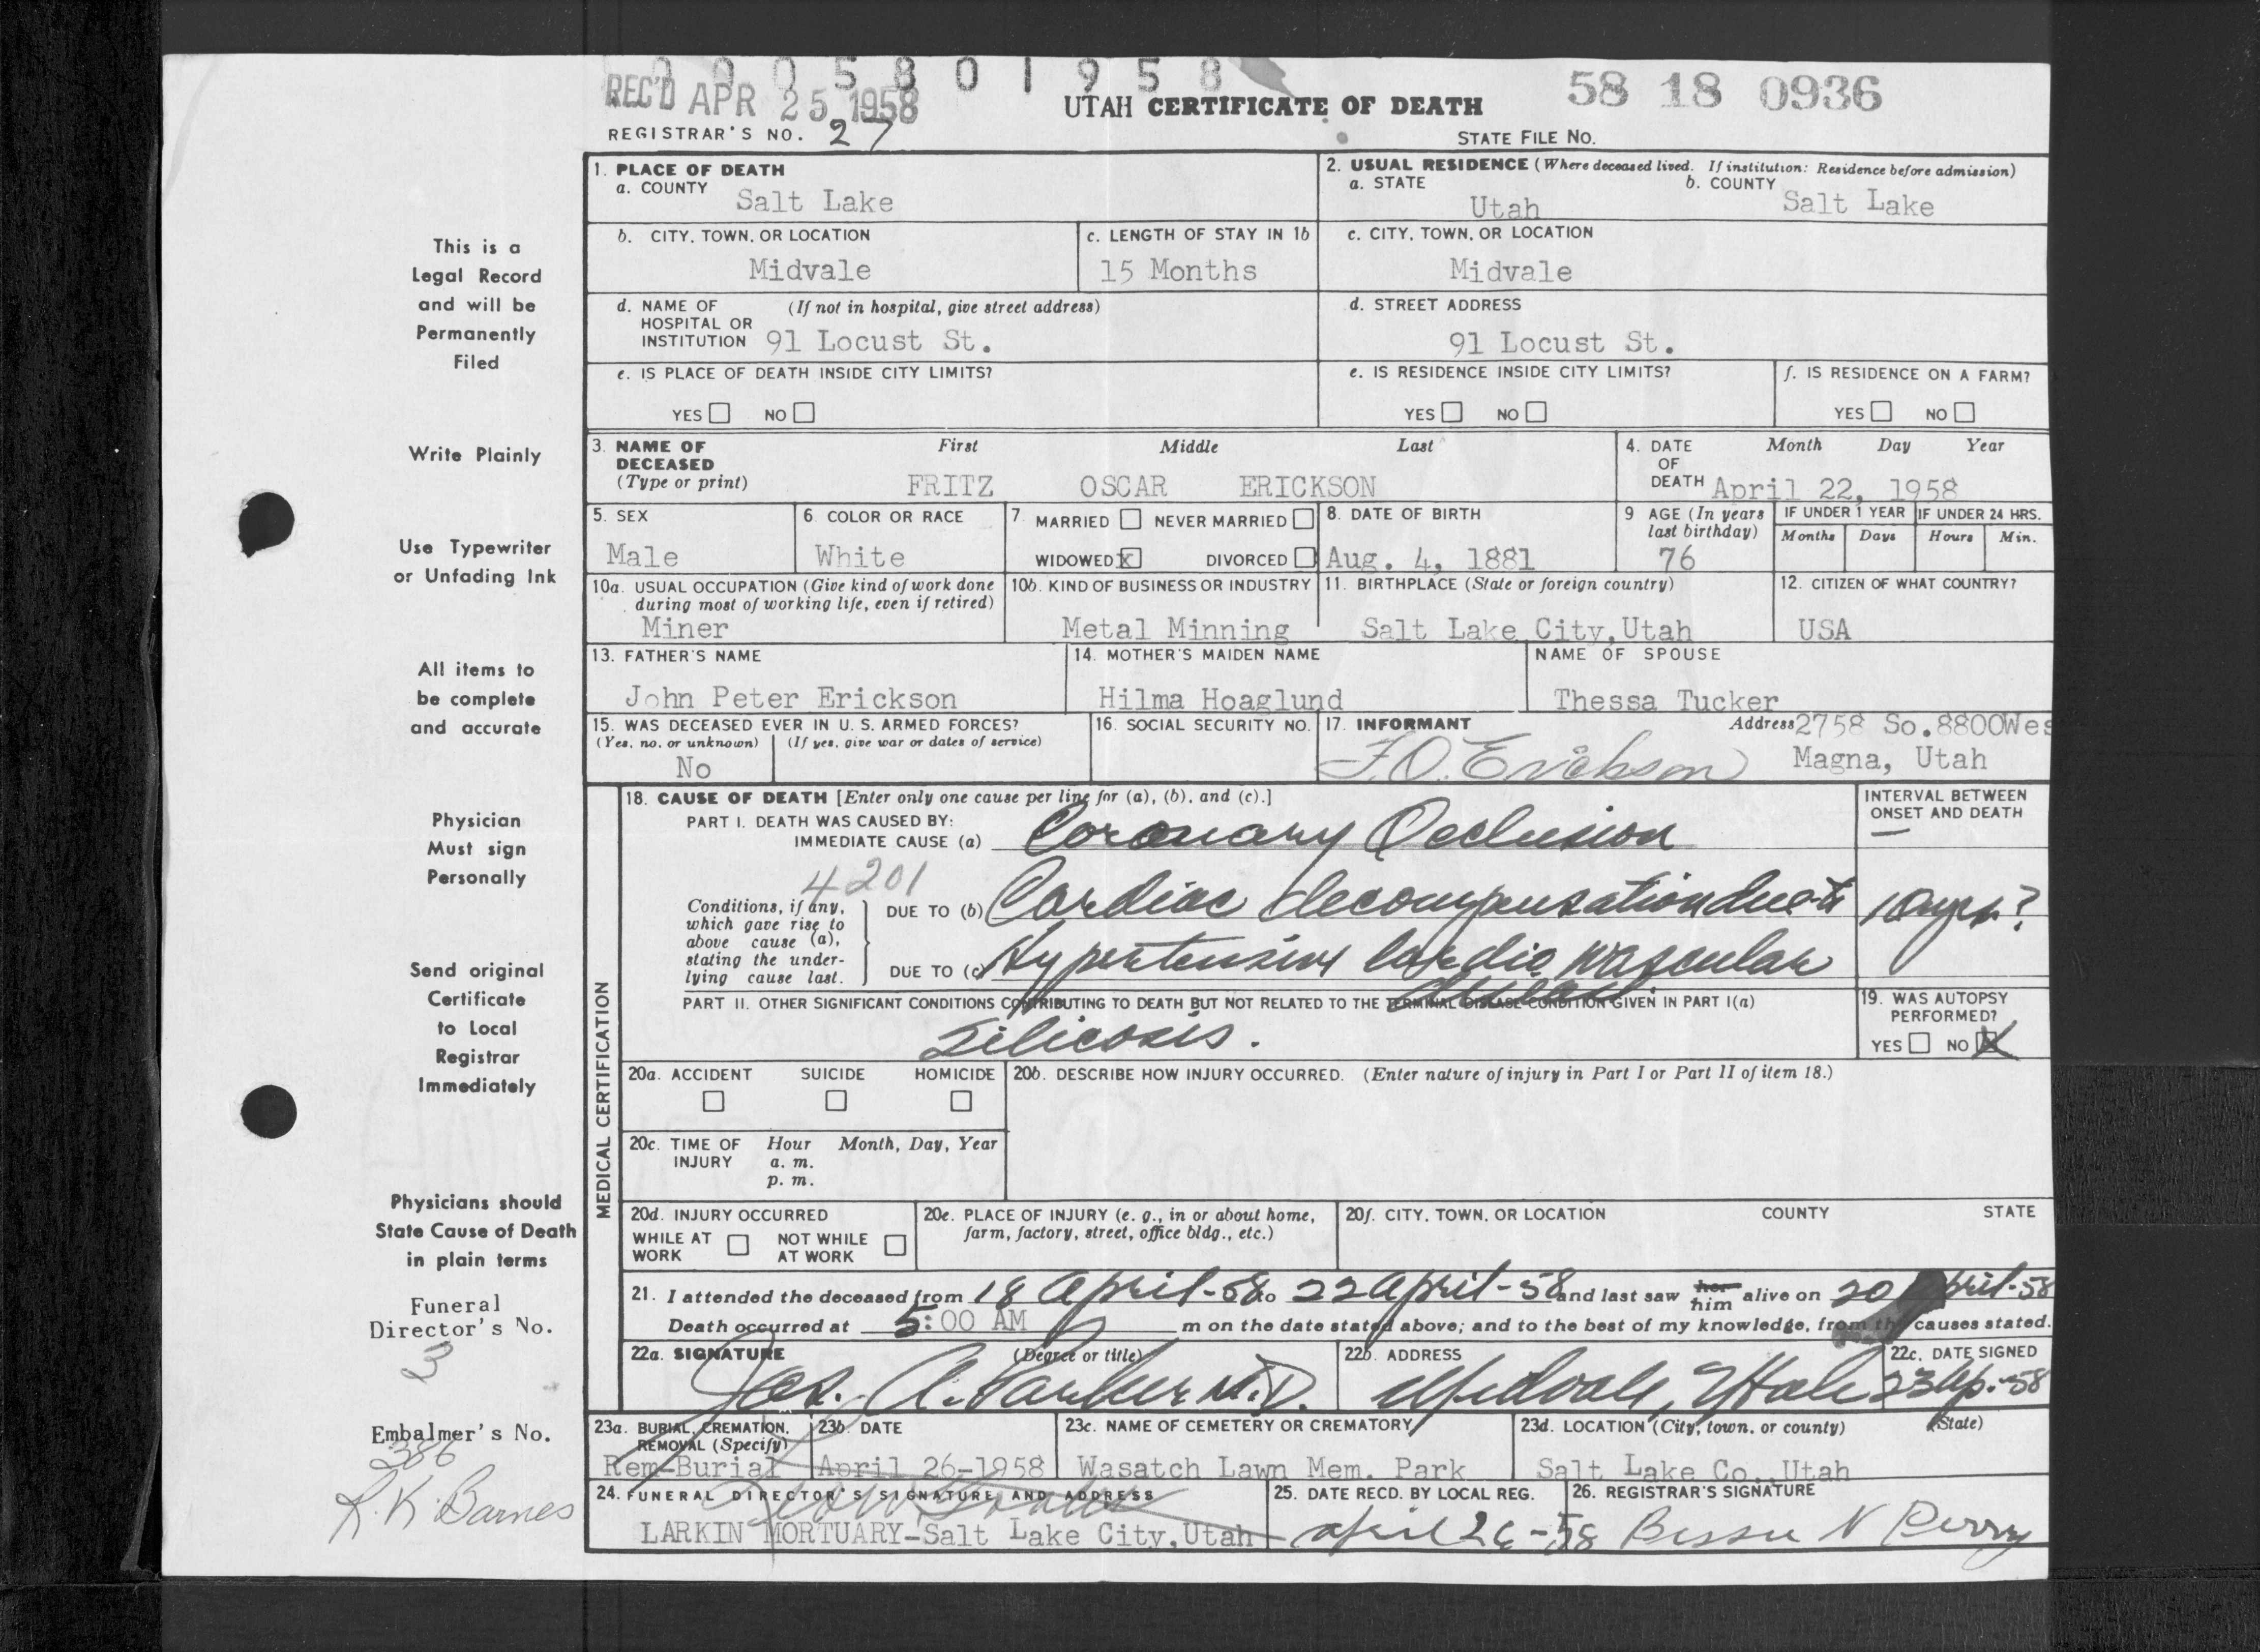 0 0 0 5 8 0 1 9 5 8
REC'D APR 25 1958
UTAH CERTIFICATE OF DEATH
58 18 0936
REGISTRAR'S NO. 27
STATE FILE No.
1. PLACE OF DEATH
a. COUNTY
Salt Lake
2. USUAL RESIDENCE (Where deceased lived. If institution: Residence before admission)
a. STATE
Utah
b. COUNTY
Salt Lake
b. CITY, TOWN, OR LOCATION
Midvale
c. LENGTH OF STAY IN 1b
15 Months
c. CITY, TOWN, OR LOCATION
Midvale
d. NAME OF (If not in hospital, give street address)
HOSPITAL OR
INSTITUTION 91 Locust St.
d. STREET ADDRESS
91 Locust St.
e. IS PLACE OF DEATH INSIDE CITY LIMITS?
YES NO
e. IS RESIDENCE INSIDE CITY LIMITS?
YES NO
f. IS RESIDENCE ON A FARM?
YES NO
3. NAME OF DECEASED (Type or print)
First Middle Last
FRITZ OSCAR ERICKSON
4. DATE OF DEATH
Month Day Year
April 22, 1958
5. SEX
Male
6. COLOR OR RACE
White
7. MARRIED NEVER MARRIED
WIDOWED X DIVORCED
8. DATE OF BIRTH
Aug. 4, 1881
9 AGE (In years
last birthday)
76
IF UNDER 1 YEAR
Months Days
IF UNDER 24 HRS.
Hours Min.
10a. USUAL OCCUPATION (Give kind of work done
during most of working life, even if retired)
Miner
10b. KIND OF BUSINESS OR INDUSTRY
Metal Minning
11. BIRTHPLACE (State or foreign country)
Salt Lake City, Utah
12. CITIZEN OF WHAT COUNTRY?
USA
13. FATHER'S NAME
John Peter Erickson
14. MOTHER'S MAIDEN NAME
Hilma Hoaglund
NAME OF SPOUSE
Thessa Tucker
15. WAS DECEASED EVER IN U. S. ARMED FORCES?
(Yes, no, or unknown) (If yes, give war or dates of service)
No
16. SOCIAL SECURITY NO.
17. INFORMANT
F.O. Erickson
Address 2758 So. 8800 Wes
Magna, Utah
MEDICAL CERTIFICATION
18. CAUSE OF DEATH [Enter only one cause per line for (a), (b), and (c).]
PART I. DEATH WAS CAUSED BY:
IMMEDIATE CAUSE (a) Coronary Occlusion
INTERVAL BETWEEN
ONSET AND DEATH
—
4201
Conditions, if any,
which gave rise to
above cause (a),
stating the under-
lying cause last.
DUE TO (b) Cardiac decompensation due to
10 yrs?
DUE TO (c) Hypertensive Cardio vascular
disease
PART II. OTHER SIGNIFICANT CONDITIONS CONTRIBUTING TO DEATH BUT NOT RELATED TO THE TERMINAL DISEASE CONDITION GIVEN IN PART I(a)
Silicosis.
19. WAS AUTOPSY
PERFORMED?
YES NO X
20a. ACCIDENT SUICIDE HOMICIDE
20b. DESCRIBE HOW INJURY OCCURRED. (Enter nature of injury in Part I or Part II of item 18.)
20c. TIME OF INJURY Hour Month, Day, Year
a. m.
p. m.
20d. INJURY OCCURRED
WHILE AT WORK NOT WHILE AT WORK
20e. PLACE OF INJURY (e. g., in or about home,
farm, factory, street, office bldg., etc.)
20f. CITY, TOWN, OR LOCATION COUNTY STATE
21. I attended the deceased from 18 April-58 to 22 April-58 and last saw her him alive on 20 April-58
Death occurred at 5:00 AM m on the date stated above; and to the best of my knowledge, from the causes stated.
22a. SIGNATURE (Degree or title)
Jas. A. Parker M.D.
22b. ADDRESS
Midvale, Utah
22c. DATE SIGNED
23 Ap.-58
23a. BURIAL, CREMATION,
REMOVAL (Specify)
Rem-Burial
23b. DATE
April 26-1958
23c. NAME OF CEMETERY OR CREMATORY
Wasatch Lawn Mem. Park
23d. LOCATION (City, town, or county) (State)
Salt Lake Co., Utah
24. FUNERAL DIRECTOR'S SIGNATURE AND ADDRESS
LARKIN MORTUARY-Salt Lake City, Utah
25. DATE RECD. BY LOCAL REG.
april 26-58
26. REGISTRAR'S SIGNATURE
Bessie N Perry
This is a
Legal Record
and will be
Permanently
Filed
Write Plainly
Use Typewriter
or Unfading Ink
All items to
be complete
and accurate
Physician
Must sign
Personally
Send original
Certificate
to Local
Registrar
Immediately
Physicians should
State Cause of Death
in plain terms
Funeral
Director's No.
3
Embalmer's No.
386
R. K. Barnes